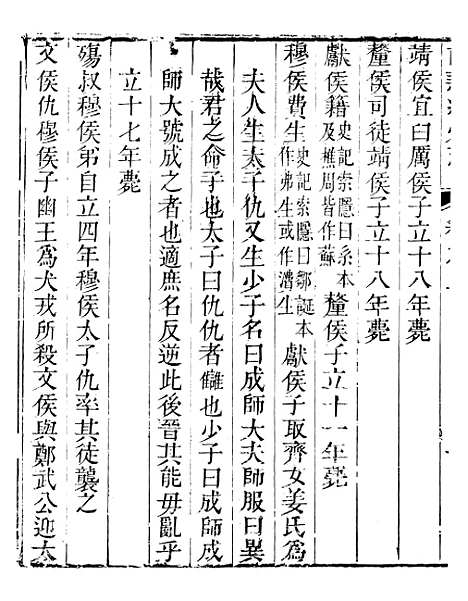 靖侯宜曰厲侯子立十八年薨
釐侯可徒靖侯子立十八年薨
獻侯籍史記索隱曰系本及樵周皆作蘇釐侯子立十一年薨
穆侯費生史記索隱曰鄒誕本作弗生或作潰生獻侯子取齊女姜氏爲
夫人生太子仇又生少子名曰成師大夫師服曰異
哉君之命子也太子曰仇仇者讎也少子曰成師成
師大號成之者也適庶名反逆此後晉其能毋亂乎
立十七年薨
殤叔穆侯弟自立四年穆侯太子仇率其徒襲之
文侯仇穆侯子幽王爲犬戎所殺文侯與鄭武公迎太